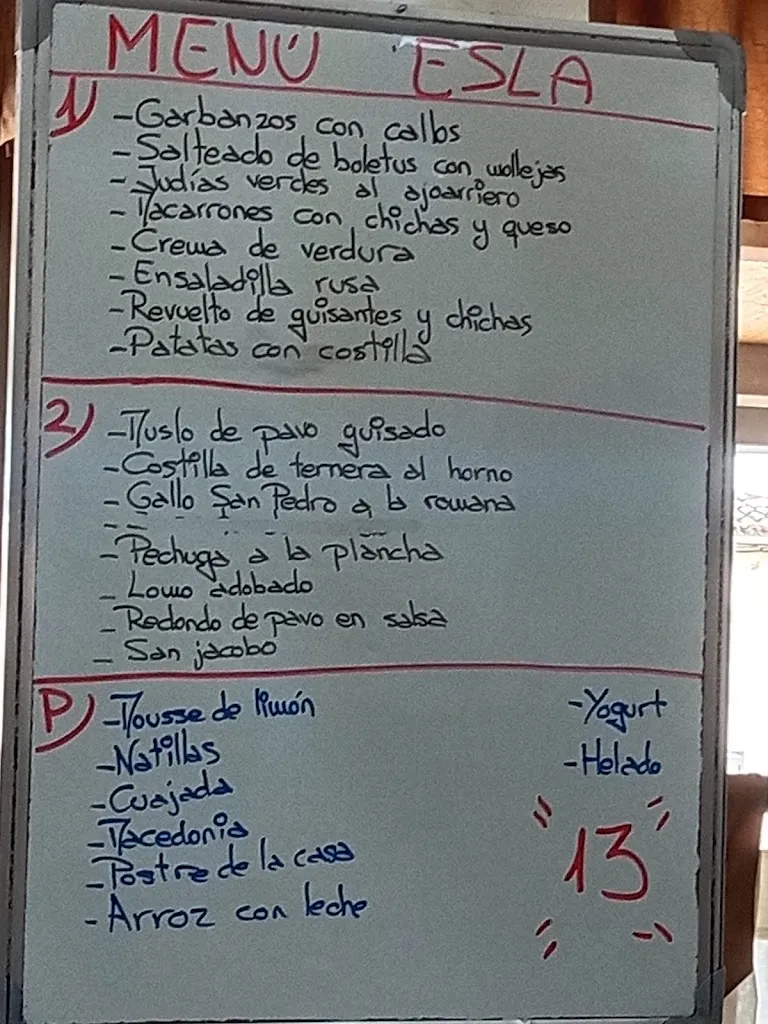 MENÚ ESLA
1) -Garbanzos con callos
-Salteado de boletus con mollejas
-Judías verdes al ajoarriero
-Macarrones con chichas y queso
-Crema de verdura
-Ensaladilla rusa
-Revuelto de guisantes y chichas
-Patatas con costilla
2) -Muslo de pavo guisado
-Costilla de ternera al horno
-Gallo San Pedro a la romana
-Pechuga a la plancha
-Lomo adobado
-Redondo de pavo en salsa
-San jacobo
P) -Mousse de limón
-Natillas
-Cuajada
-Macedonia
-Postre de la casa
-Arroz con leche
-Yogurt
-Helado
13